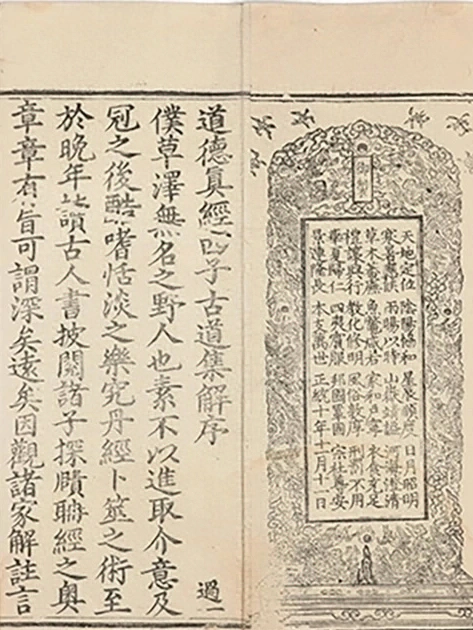 天地定位 陰陽協和 星辰順度 日月昭明
寒暑應候 雨暘以時 山嶽靖謐 河海澄清
草木蕃廡 魚鱉咸若 家和戶寧 衣食充足
禮讓興行 教化修明 風俗敦厚 刑罰不用
華夏歸仁 四夷賓服 邦國鞏固 宗社尊安
景運隆長 本支萬世 正統十年十一月十一日
道德眞經四子古道集解序
過一
僕草澤無名之野人也素不以進取介意及
冠之後酷嗜恬淡之樂究丹經卜筮之術至
於晚年讀古人書披閱諸子探賾聃經之奧
章章有旨可謂深矣遠矣因觀諸家解註言